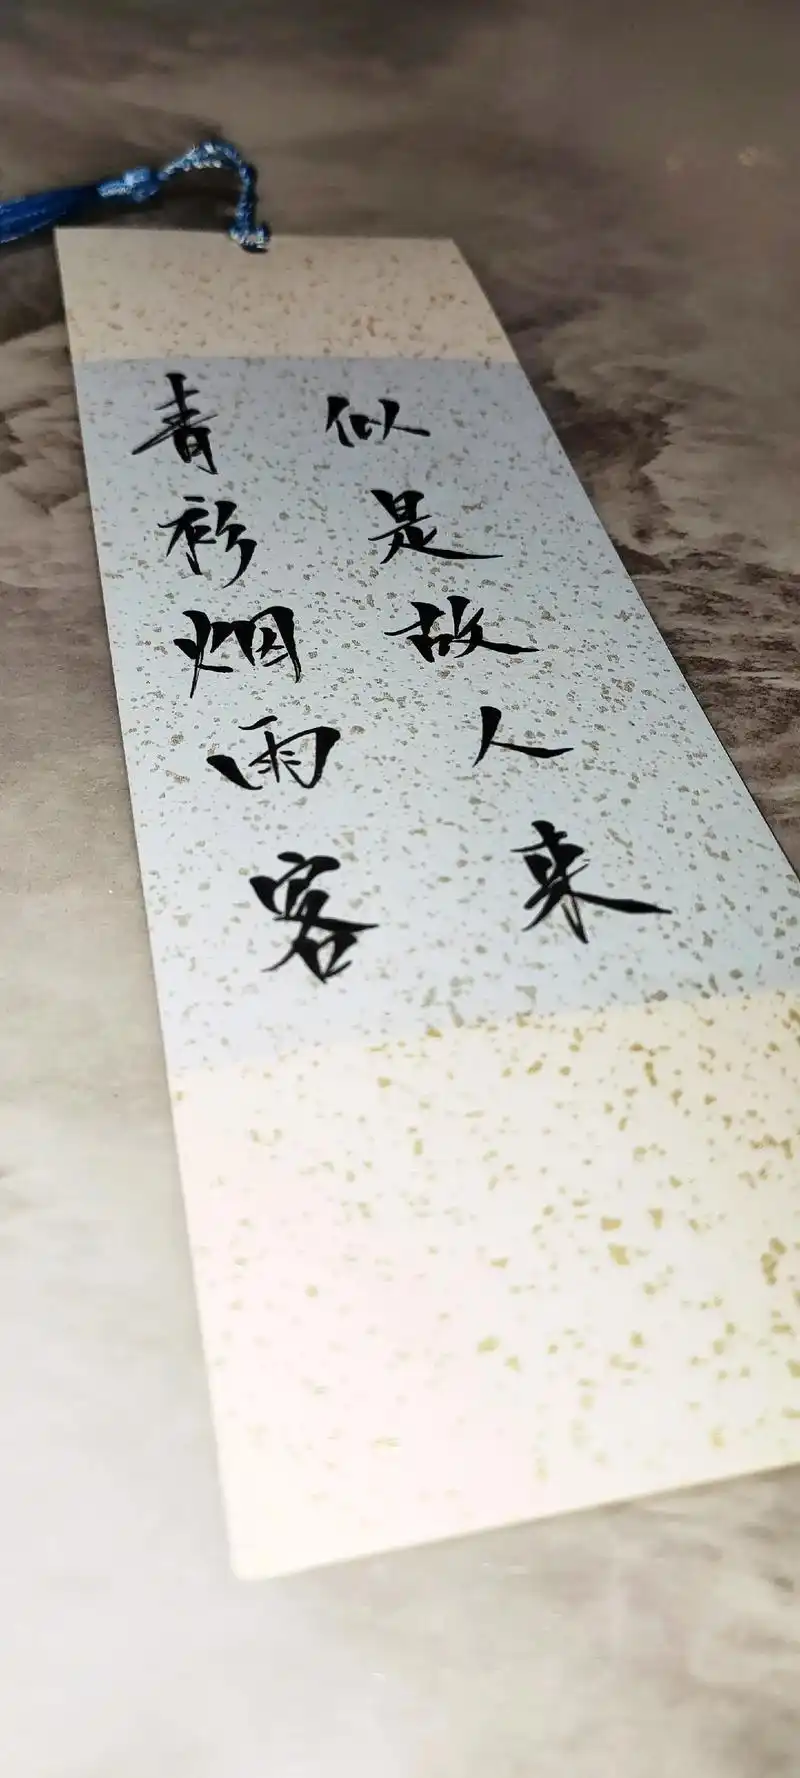 青衫烟雨客
似是故人来